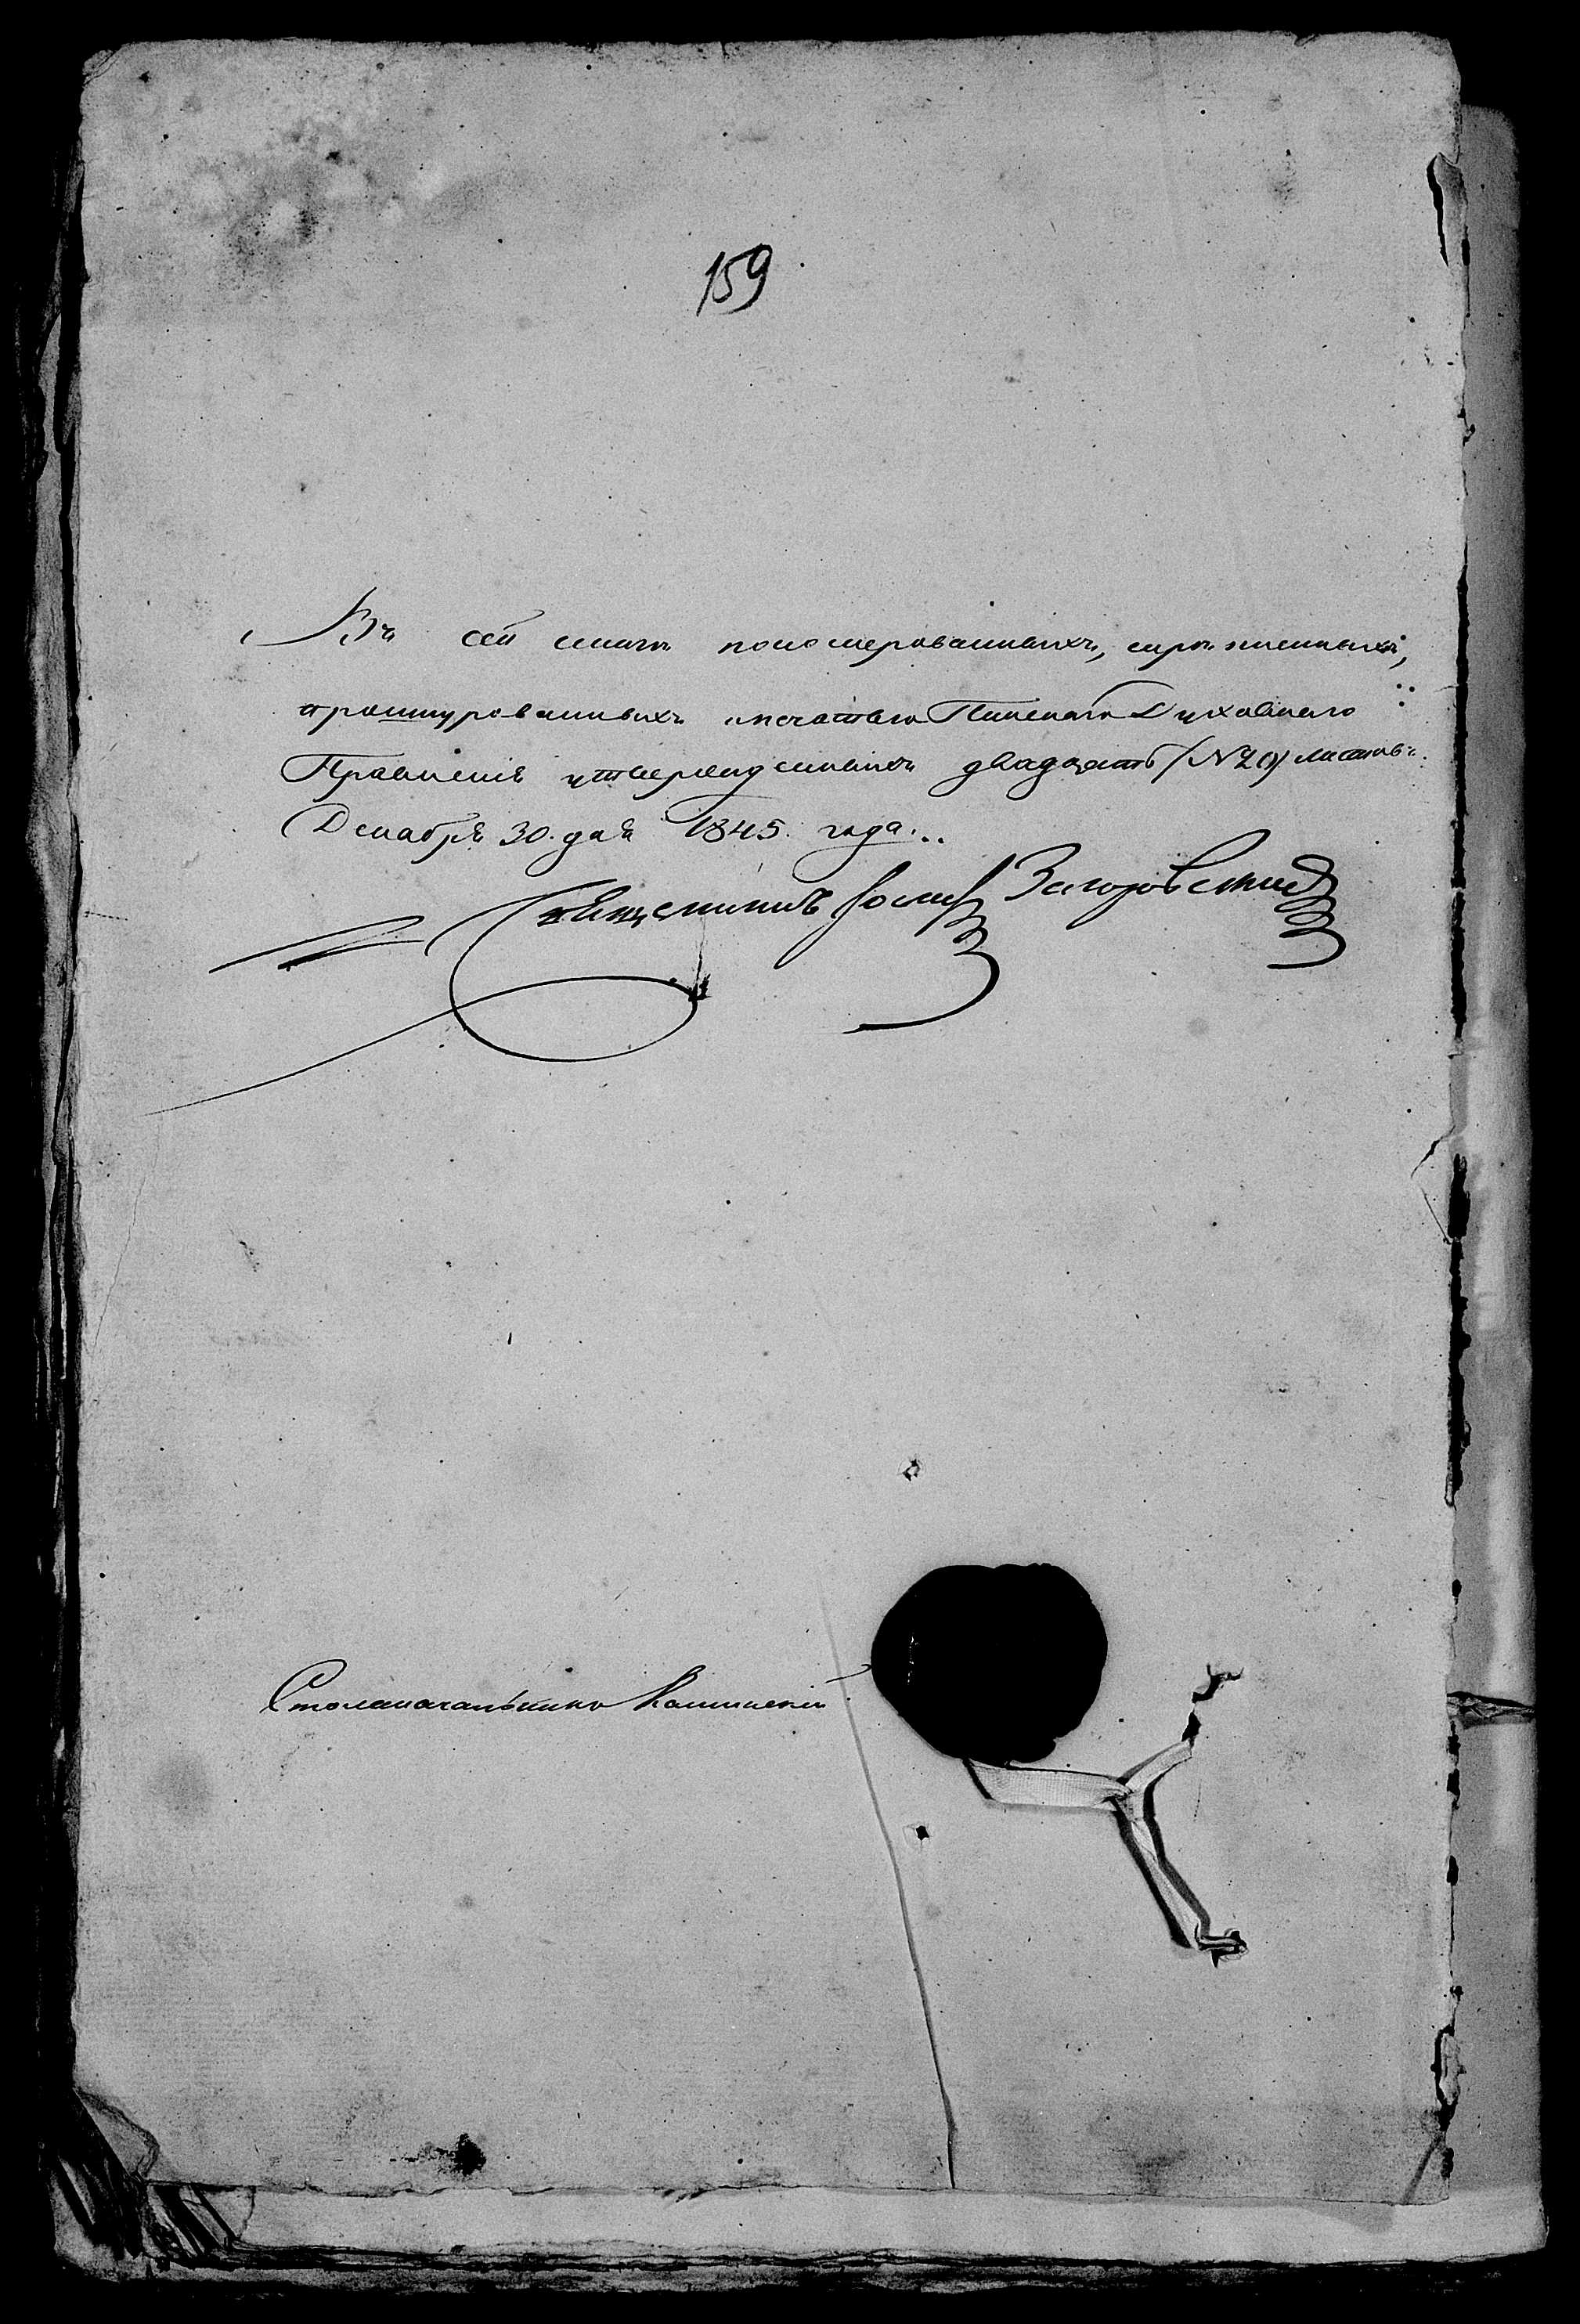 159
Въ сей книги пономерованныхъ, скрепленныхъ,
прошнурованныхъ и печатью Пинскаго Духовнаго
Правленія утвержденныхъ двадцать (N 20) листовъ.
Декабря 30. дня 1845. года.
Священникъ Іосиф Загоровскій
Столоначальникъ